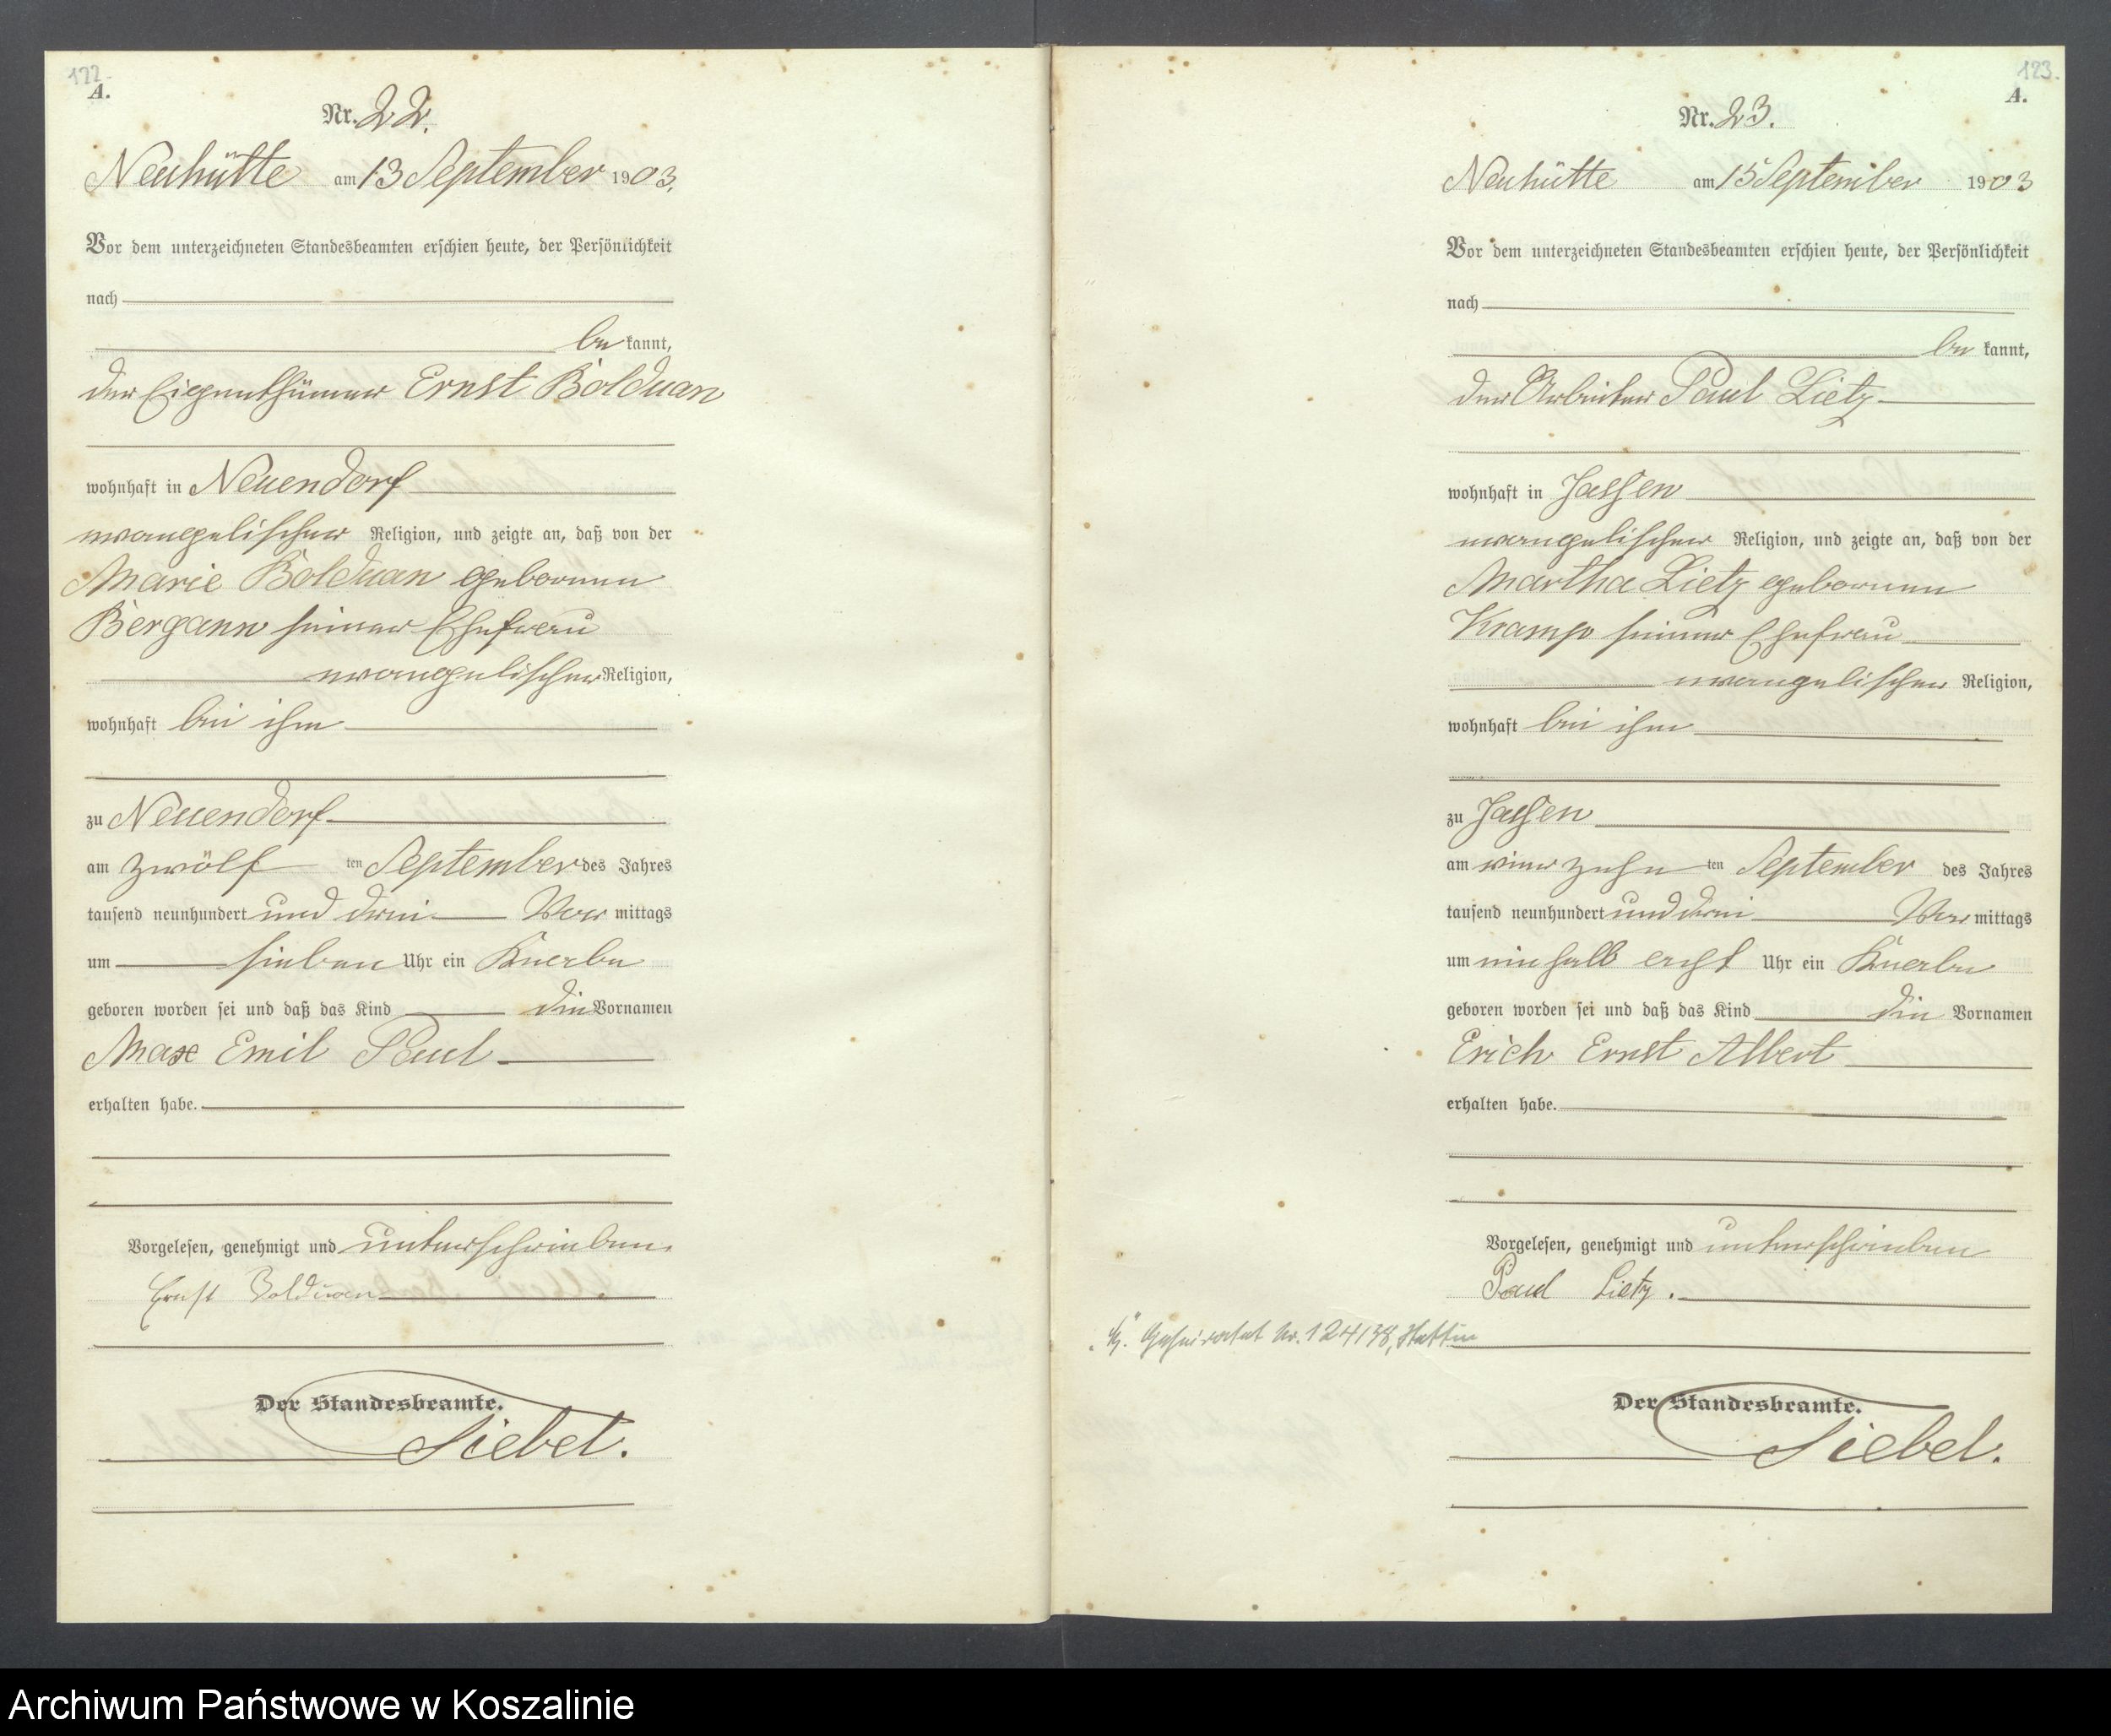 122.
A.
Nr. 22.
Neuhütte am 13 September 1903.
Vor dem unterzeichneten Standesbeamten erschien heute, der Persönlichkeit
nach
be kannt,
der Eigenthümer Ernst Bolduan
wohnhaft in Neuendorf
evangelischer Religion, und zeigte an, daß von der
Marie Bolduan geborenen
Bergann seiner Ehefrau
evangelischer Religion,
wohnhaft bei ihm
zu Neuendorf
am zwölf ten September des Jahres
tausend neunhundert und drei Vor mittags
um sieben Uhr ein Knabe
geboren worden sei und daß das Kind die Vornamen
Max Emil Paul
erhalten habe.
Vorgelesen, genehmigt und unterschrieben.
Ernst Bolduan
Der Standesbeamte.
Siebel.
123.
A.
Nr. 23.
Neuhütte am 15 September 1903
Vor dem unterzeichneten Standesbeamten erschien heute, der Persönlichkeit
nach
be kannt,
der Arbeiter Paul Lietz
wohnhaft in Jassen
evangelischer Religion, und zeigte an, daß von der
Martha Lietz geborenen
Kramp seiner Ehefrau
evangelischer Religion,
wohnhaft bei ihm
zu Jassen
am vierzehn ten September des Jahres
tausend neunhundert und drei Vor mittags
um einhalb acht Uhr ein Knabe
geboren worden sei und daß das Kind die Vornamen
Erich Ernst Albert
erhalten habe.
Vorgelesen, genehmigt und unterschrieben
Paul Lietz.
Geheiratet Nr. 124/38, Stettin
Der Standesbeamte.
Siebel.
Archiwum Państwowe w Koszalinie